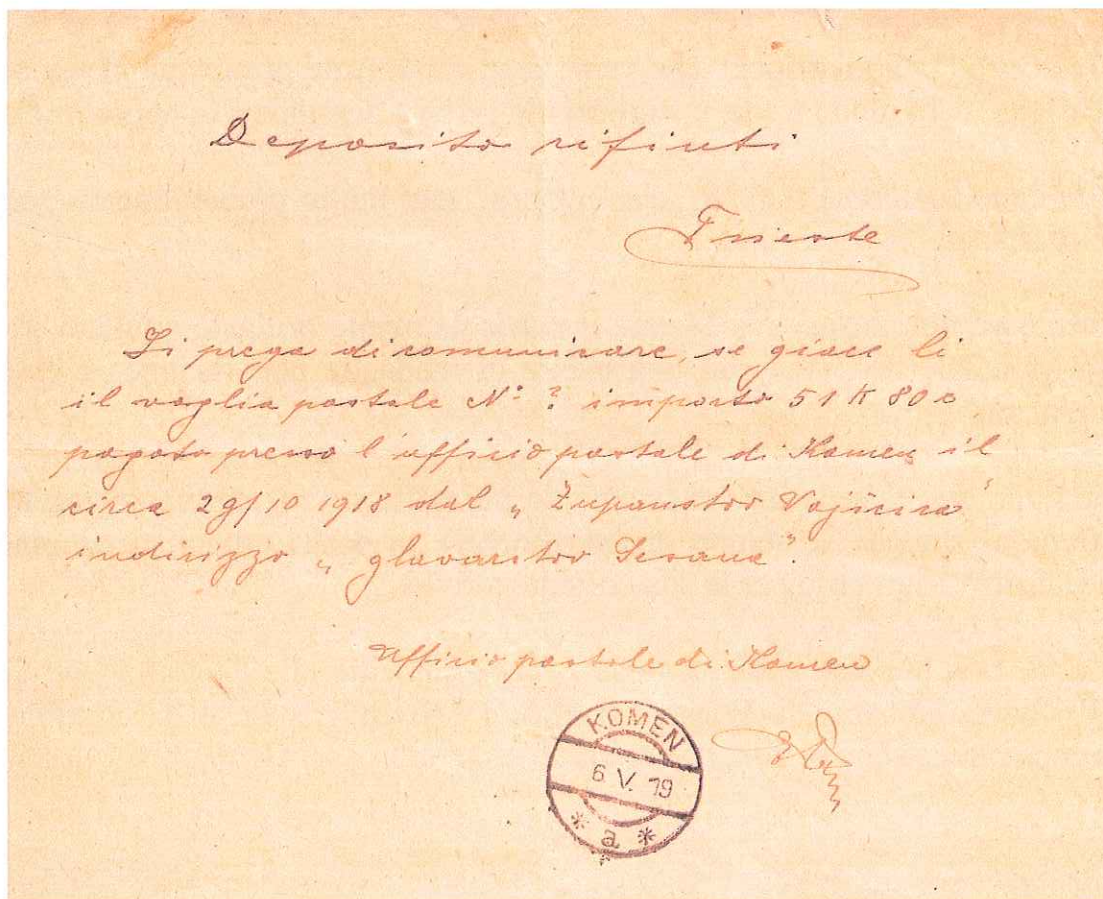 Deposito rifiuti
Trieste
Si prega di comunicare, se giace li
il vaglia postale No ? importo 51 K 80 c
pagato presso l'ufficio postale di Komen il
circa 29/10 1918 dal „Županstvo Vojščica"
indirizzo „glavarstvo Sesana".
Ufficio postale di Komen
KOMEN
6 V. 19
* a *